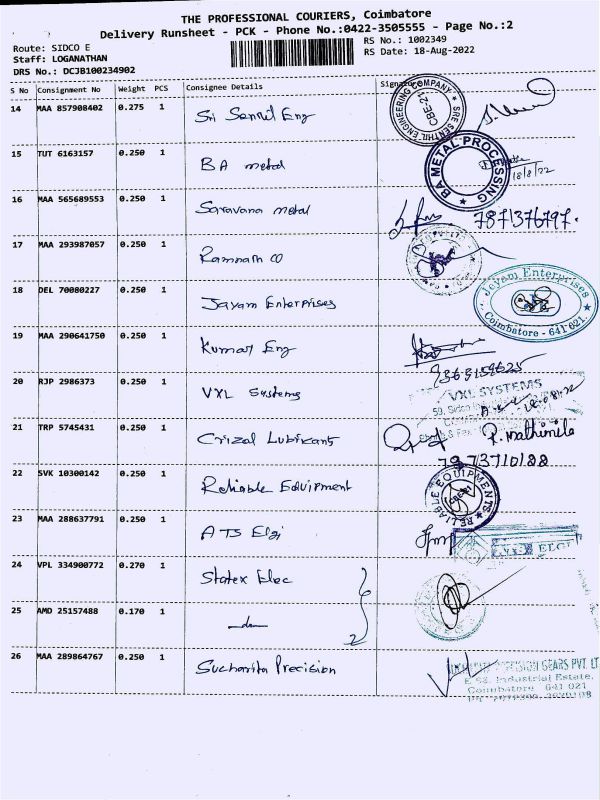 THE PROFESSIONAL COURIERS, Coimbatore
Delivery Runsheet - PCK - Phone No.:0422-3505555 - Page No.:2
Route: SIDCO E
Staff: LOGANATHAN
DRS No.: DCJB100234902
RS No.: 1002349
RS Date: 18-Aug-2022
S No Consignment No Weight PCS Consignee Details Signature
14 MAA 857908402 0.275 1 Sri Senthil Eng
SRE SENTHIL ENGINEERING COMPANY CBE-21
15 TUT 6163157 0.250 1 BA metal
BA METAL PROCESSING 18/8/22
16 MAA 565689553 0.250 1 Saravana metal
7871376797.
17 MAA 293987057 0.250 1 Ramnath co
18 DEL 70080227 0.250 1 Jayam Enterprises
Jayam Enterprises Coimbatore - 641 021.
19 MAA 290641750 0.250 1 Kumar Eng
9363159625
20 RJP 2986373 0.250 1 VXL Systems
VXL SYSTEMS
59, Sidco
21 TRP 5745431 0.250 1 Crizal Lubricant
R. Mathimila
7973710188
22 SVK 10300142 0.250 1 Reliable Equipment
RELIABLE EQUIPMENTS
23 MAA 288637791 0.250 1 ATS Elgi
ELGI
24 VPL 334900772 0.270 1 Statex Elec
25 AMD 25157488 0.170 1
2
26 MAA 289864767 0.250 1 Sucharita Precision
PRECISION GEARS PVT. LT
Industrial Estate,
Coimbatore 641 021